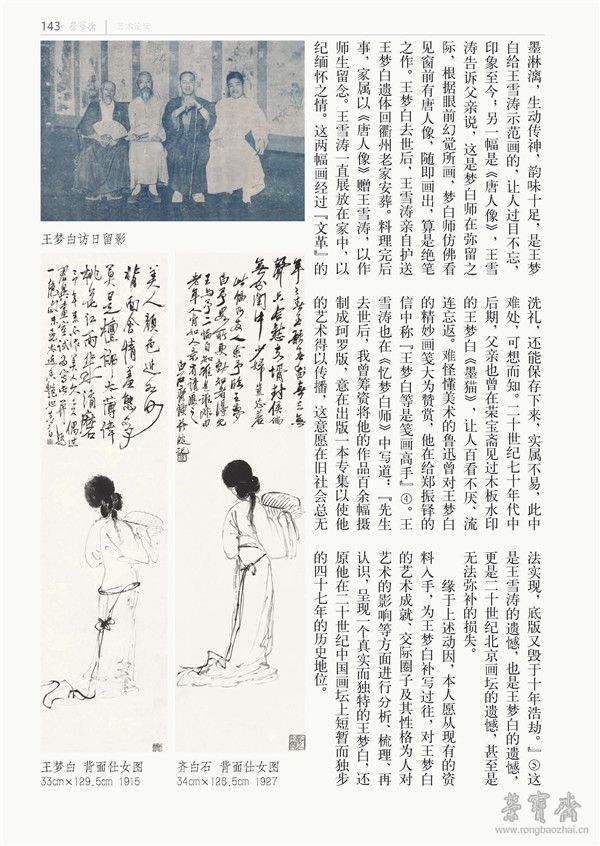 143 荣宝斋 艺术论坛
墨淋漓，生动传神，韵味十足，是王梦
白给王雪涛示范画的，让人过目不忘，
印象至今；另一幅是《唐人像》，王雪
涛告诉父亲说，这是梦白师在弥留之
际，根据眼前幻觉所画，梦白师仿佛看
见窗前有唐人像，随即画出，算是绝笔
之作。王梦白去世后，王雪涛亲自护送
王梦白遗体回衢州老家安葬。料理完后
事，家属以《唐人像》赠王雪涛，以作
师生留念。王雪涛一直展放在家中，以
纪缅怀之情。这两幅画经过『文革』的
洗礼，还能保存下来，实属不易，此中
难处，可想而知。二十世纪七十年代中
后期，父亲也曾在荣宝斋见过木板水印
的王梦白《墨猫》，让人百看不厌、流
连忘返。难怪懂美术的鲁迅曾对王梦白
的精妙画笺大为赞赏，他在给郑振铎的
信中称『王梦白等是笺画高手』④。王
雪涛也在《忆梦白师》中写道：『先生
去世后，我曾筹资将他的作品百余幅摄
制成珂罗版，意在出版一本专集以使他
的艺术得以传播，这意愿在旧社会总无
法实现，底版又毁于十年浩劫。』⑤这
是王雪涛的遗憾，也是王梦白的遗憾，
更是二十世纪北京画坛的遗憾，甚至是
无法弥补的损失。
缘于上述动因，本人愿从现有的资
料入手，为王梦白补写过往，对王梦白
的艺术成就、交际圈子及其性格为人对
艺术的影响等方面进行分析、梳理、再
认识，呈现一个真实而独特的王梦白，还
原他在二十世纪中国画坛上短暂而独步
的四十七年的历史地位。
王梦白访日留影
王梦白 背面仕女图
33cm×129.5cm 1915
齐白石 背面仕女图
34cm×128.5cm 1927
荣宝斋
www.rongbaozhai.cn